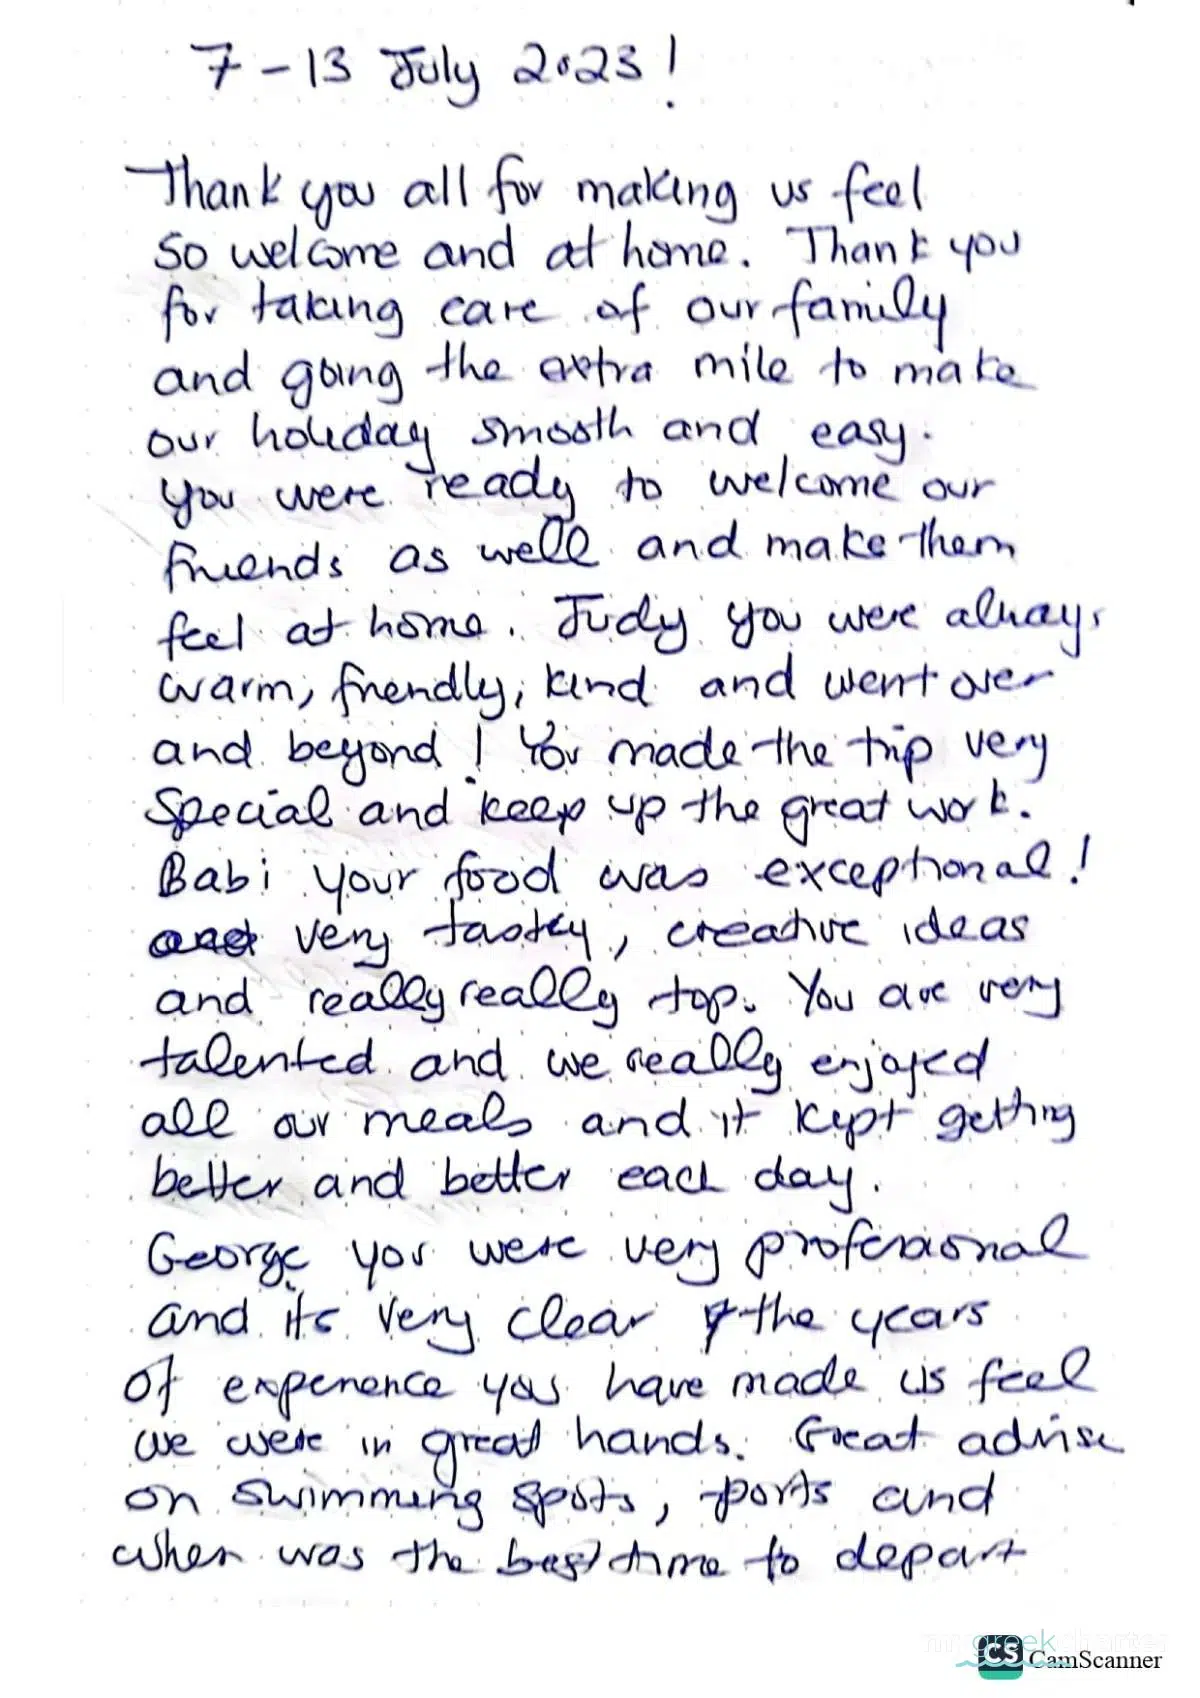 7 - 13 July 2023!
Thank you all for making us feel
so welcome and at home. Thank you
for taking care of our family
and going the extra mile to make
our holiday smooth and easy.
You were ready to welcome our
friends as well and make them
feel at home. Judy you were always
warm, friendly, kind and went over
and beyond! You made the trip very
special and keep up the great work.
Babi your food was exceptional!
very tasty, creative ideas
and really really top. You are very
talented and we really enjoyed
all our meals and it kept getting
better and better each day.
George you were very professional
and its very clear the years
of experience you have made us feel
we were in great hands. Great advise
on swimming spots, ports and
when was the best time to depart
my greek charter
CS CamScanner